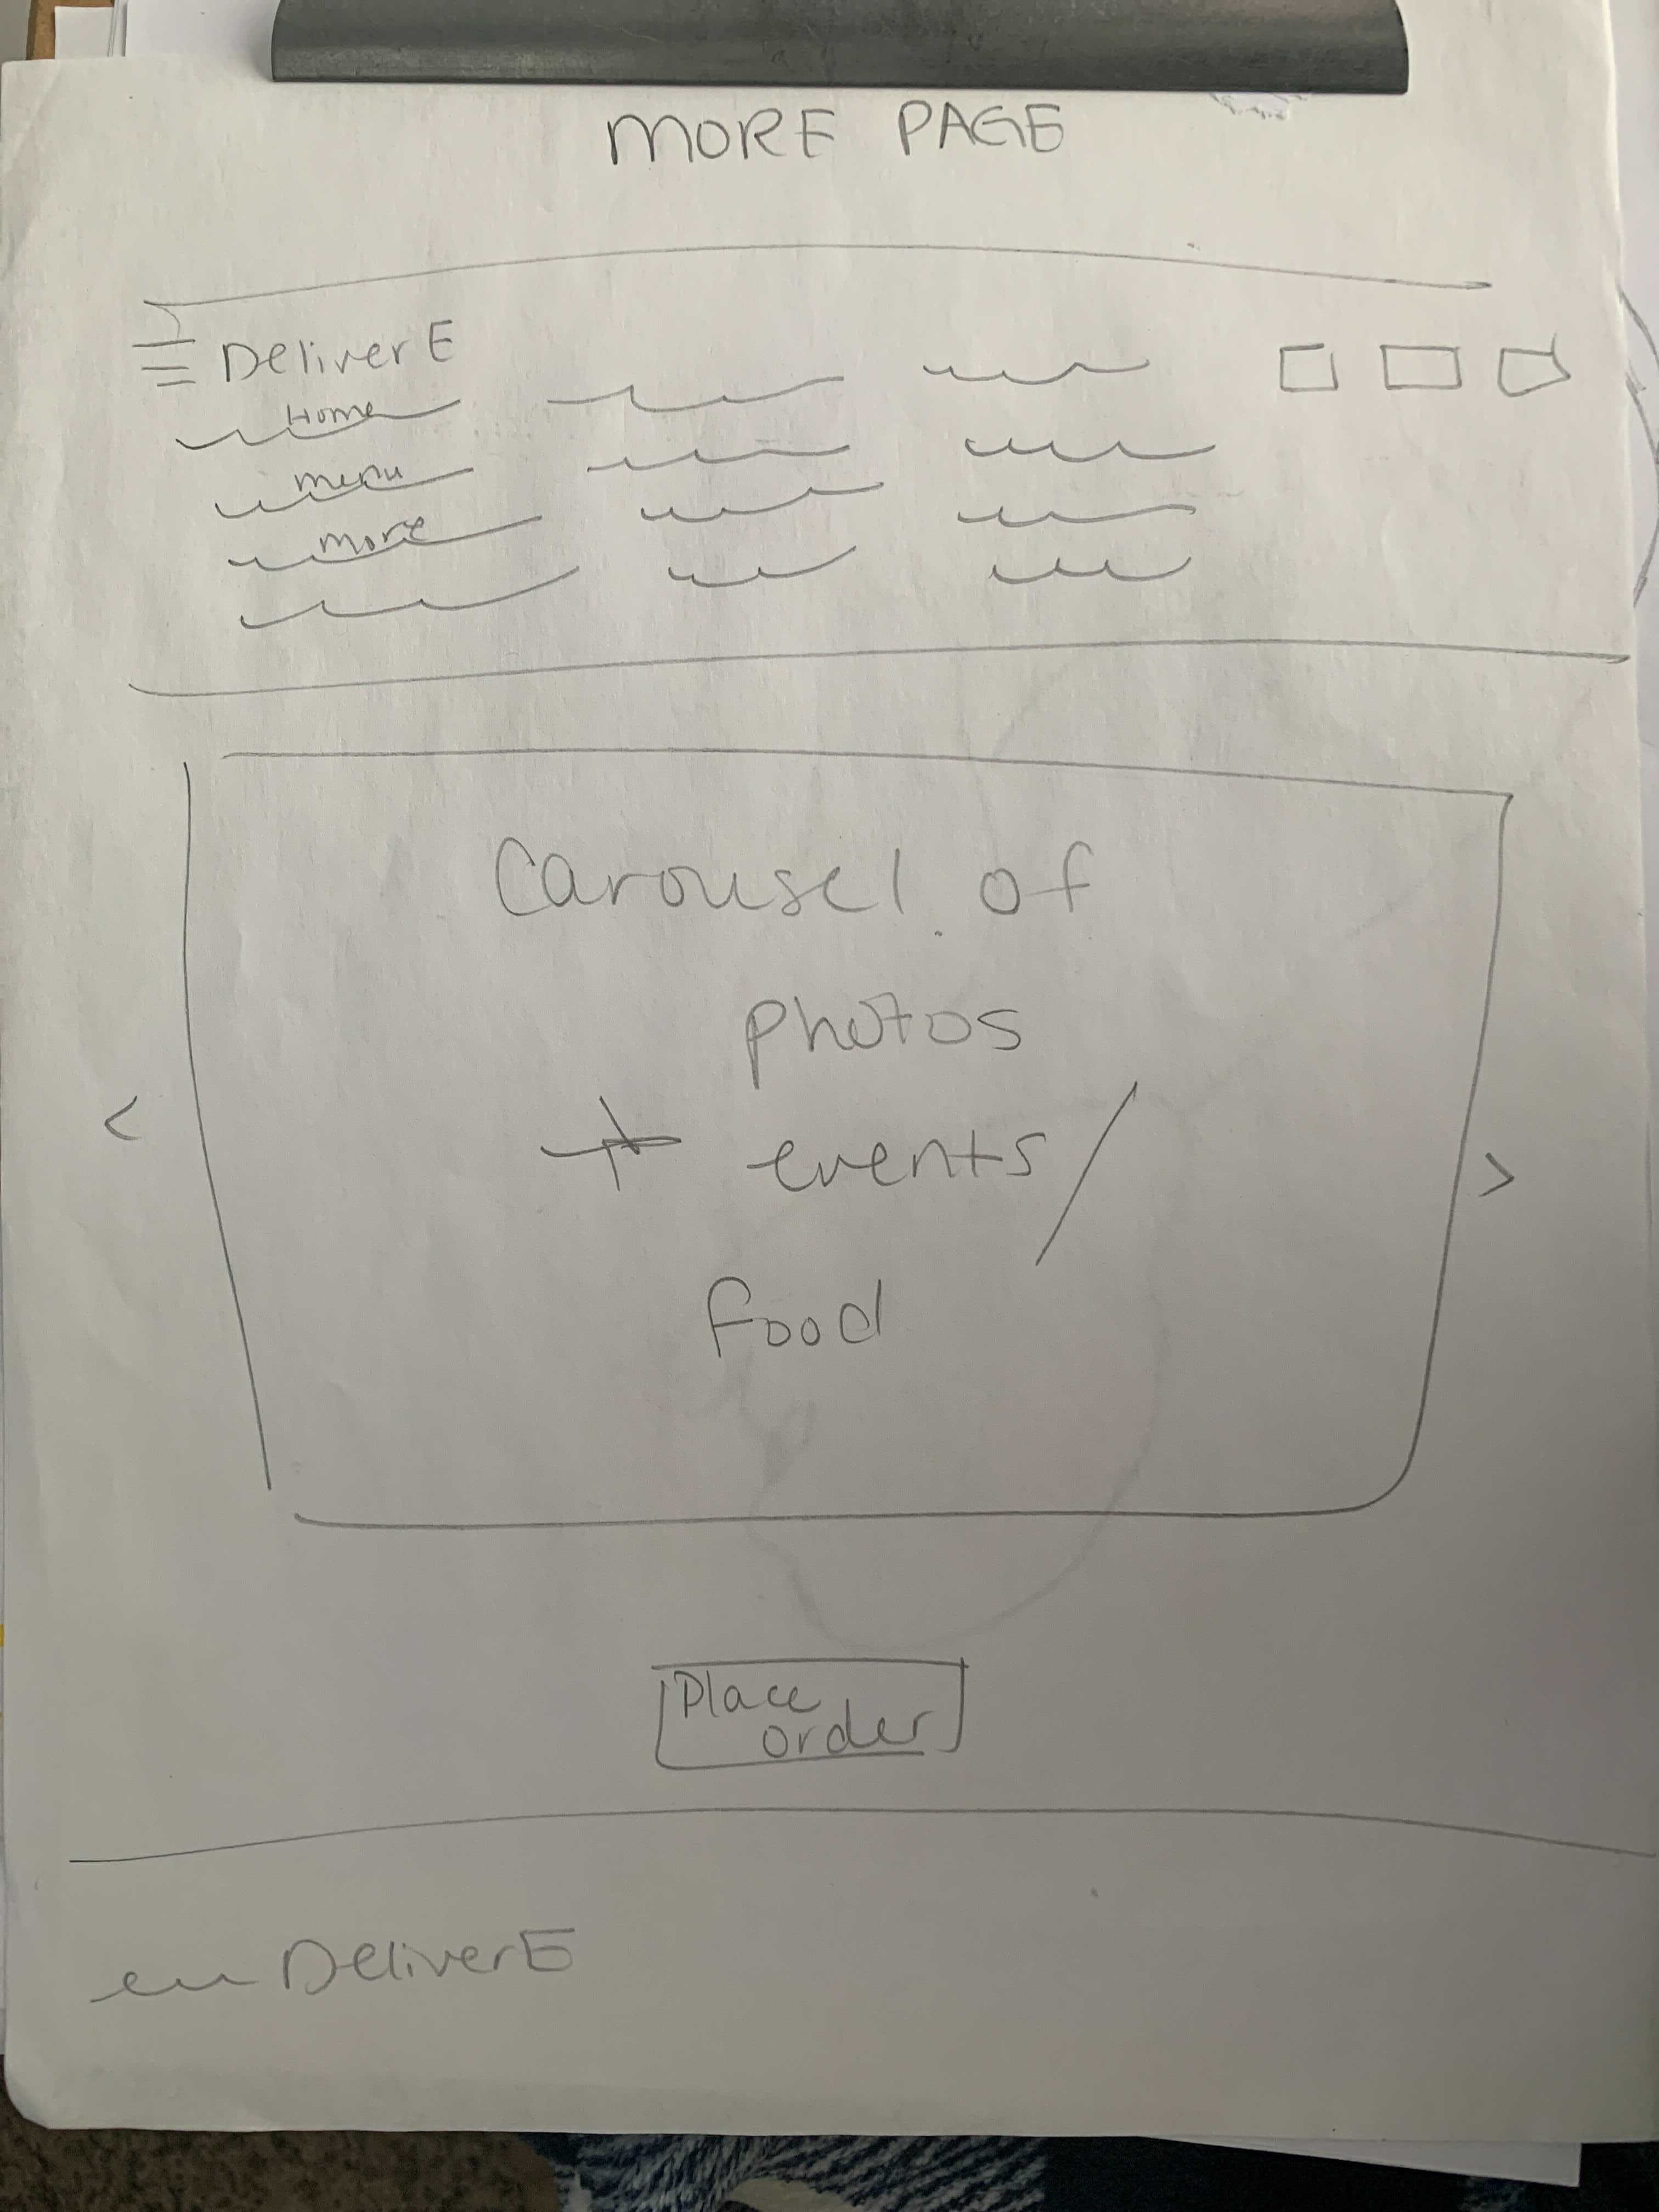 MORE PAGE
DeliverE
Home
menu
more
Carousel of
photos
+ events/
food
<
>
Place
order
DeliverE